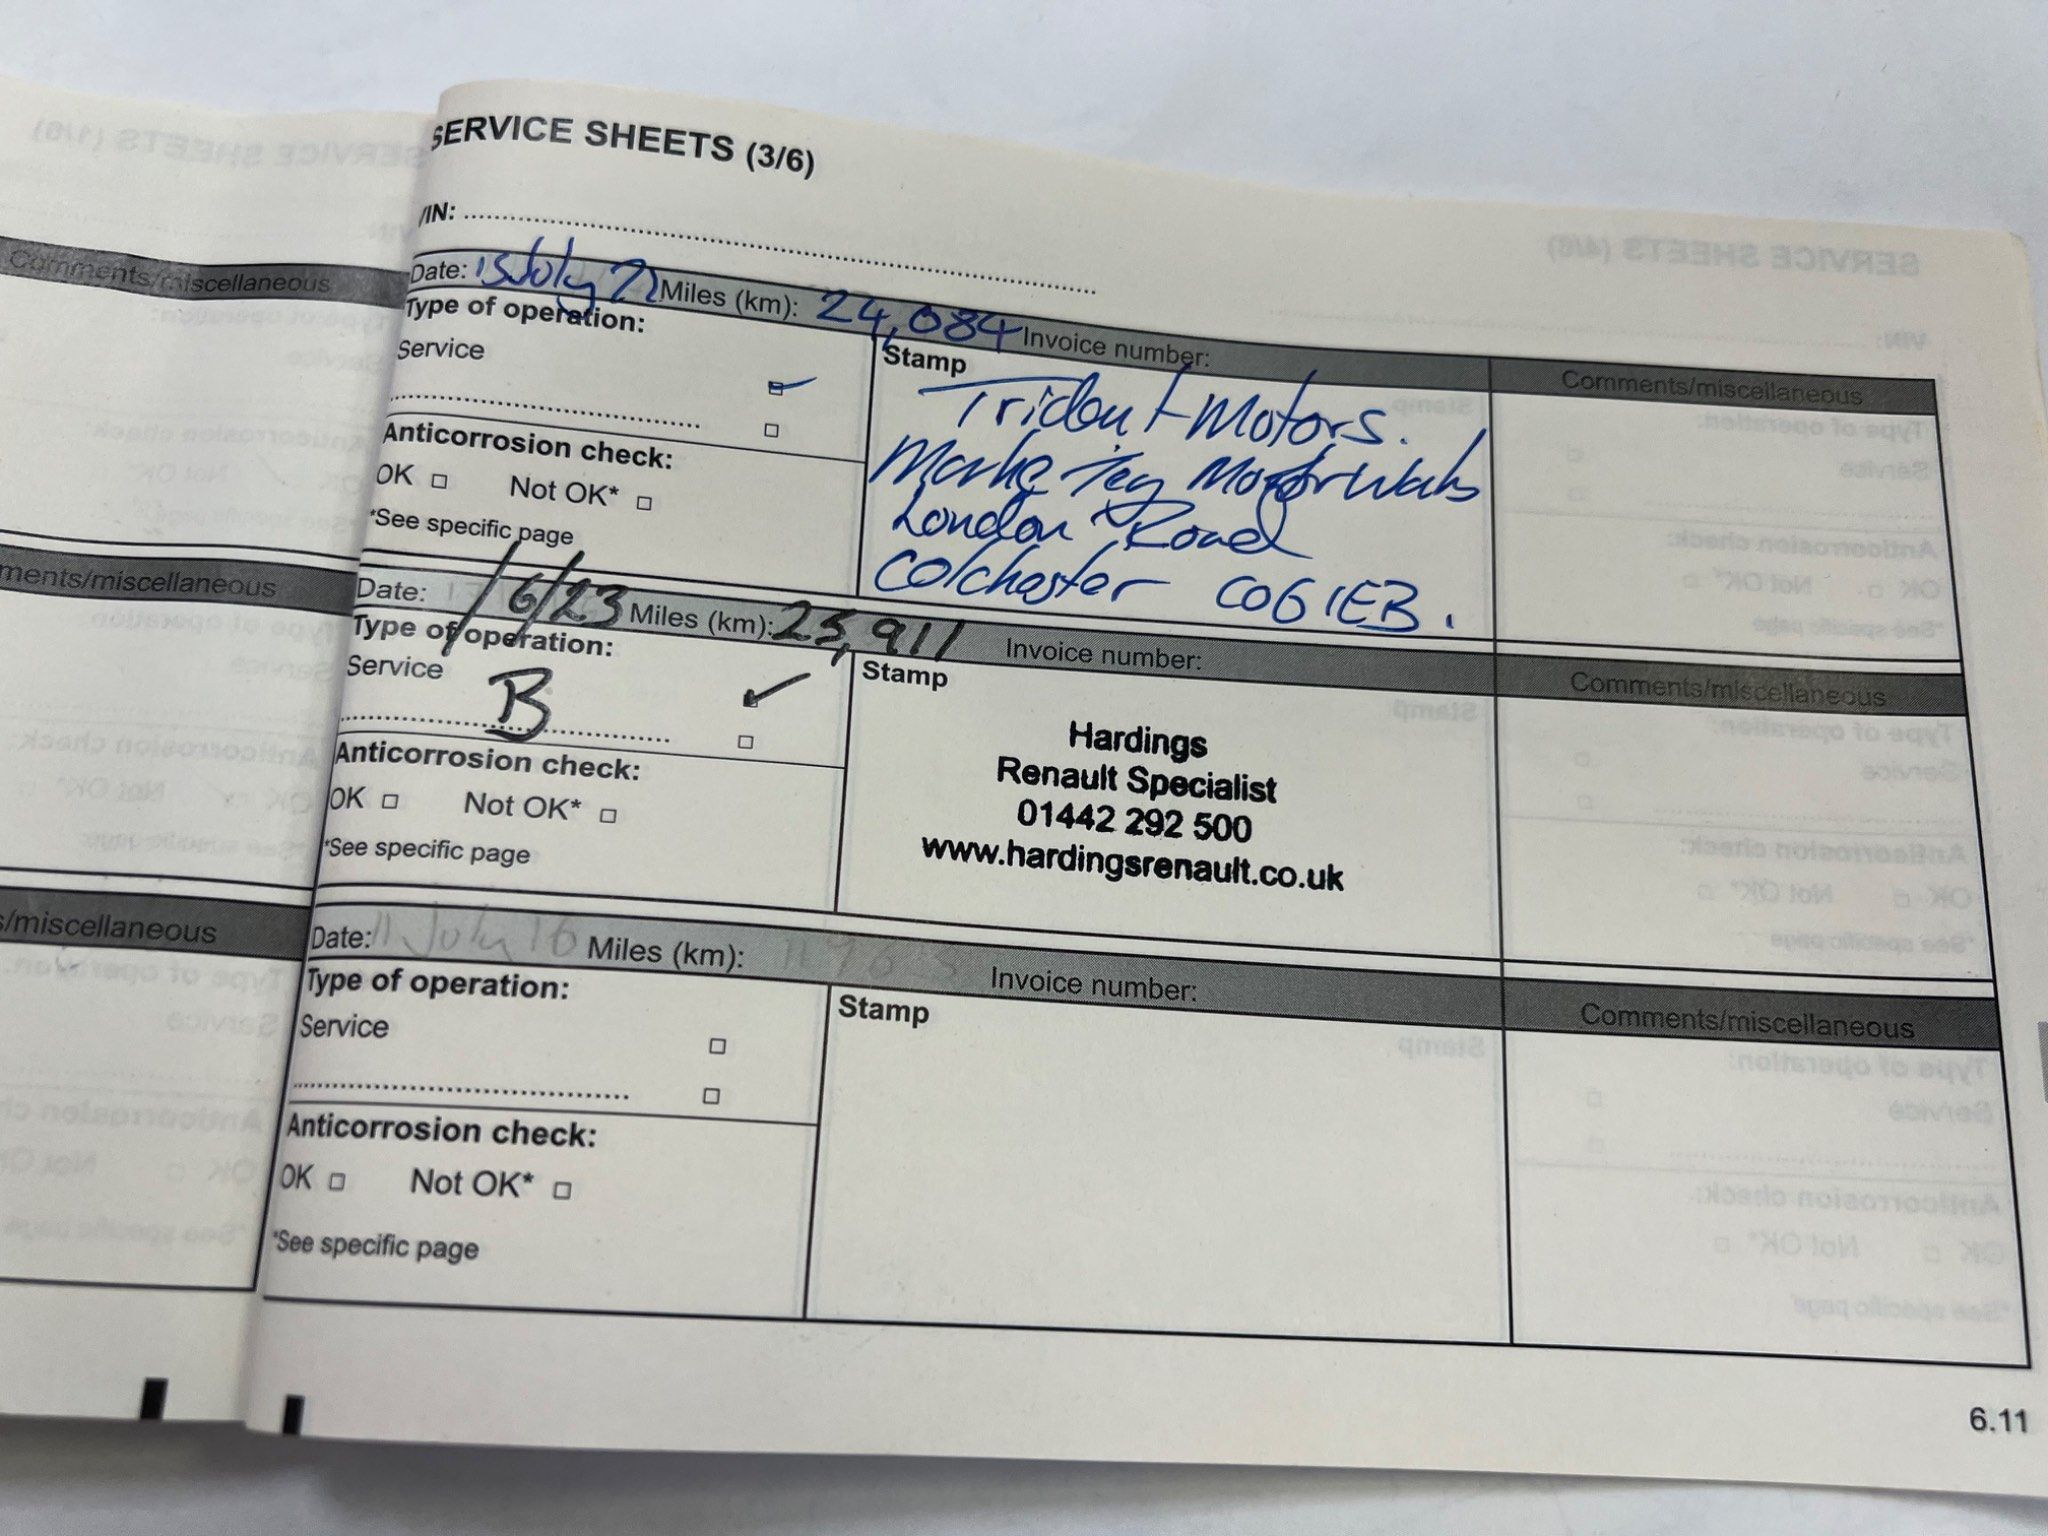 SERVICE SHEETS (3/6)
VIN:
Date: 15 July 22 Miles (km): 24,084 Invoice number:
Comments/miscellaneous
Type of operation:
Service
Stamp
Trident Motors.
Marks Tey
London Road
Colchester CO6 1EB.
Anticorrosion check:
OK Not OK*
*See specific page
Date: 1/6/23 Miles (km): 25,911 Invoice number:
Comments/miscellaneous
Type of operation:
Service
B
Stamp
Hardings
Renault Specialist
01442 292 500
www.hardingsrenault.co.uk
Anticorrosion check:
OK Not OK*
*See specific page
Date: 11 July 16 Miles (km): Invoice number:
Comments/miscellaneous
Type of operation:
Service
Stamp
Anticorrosion check:
OK Not OK*
*See specific page
6.11
Comments/miscellaneous
ments/miscellaneous
s/miscellaneous